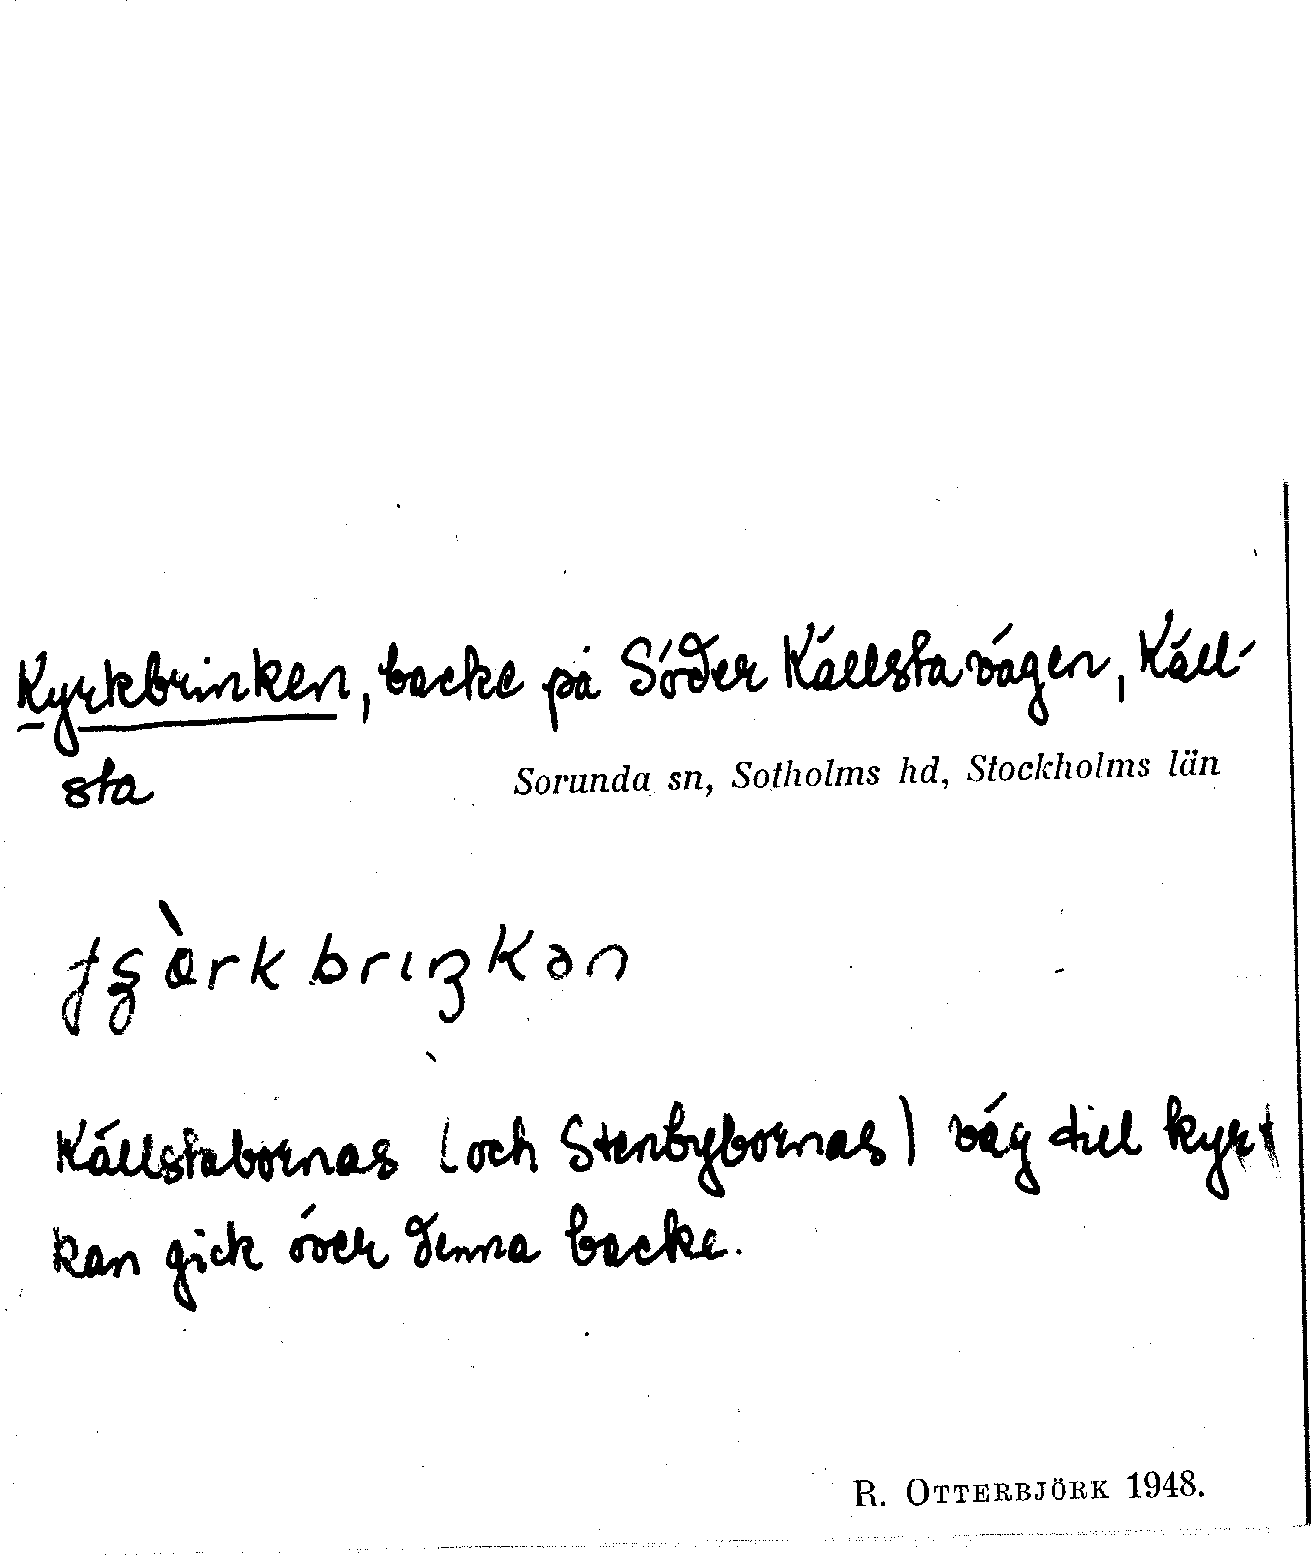 Kyrkbrinken, backe på Söder Källstavägen, Käll-
sta
Sorunda sn, Sotholms hd, Stockholms län
Källstabornas (och Stenbybornas) väg till kyr-
kan gick över denna backe.
R. OTTERBJÖRK 1948.